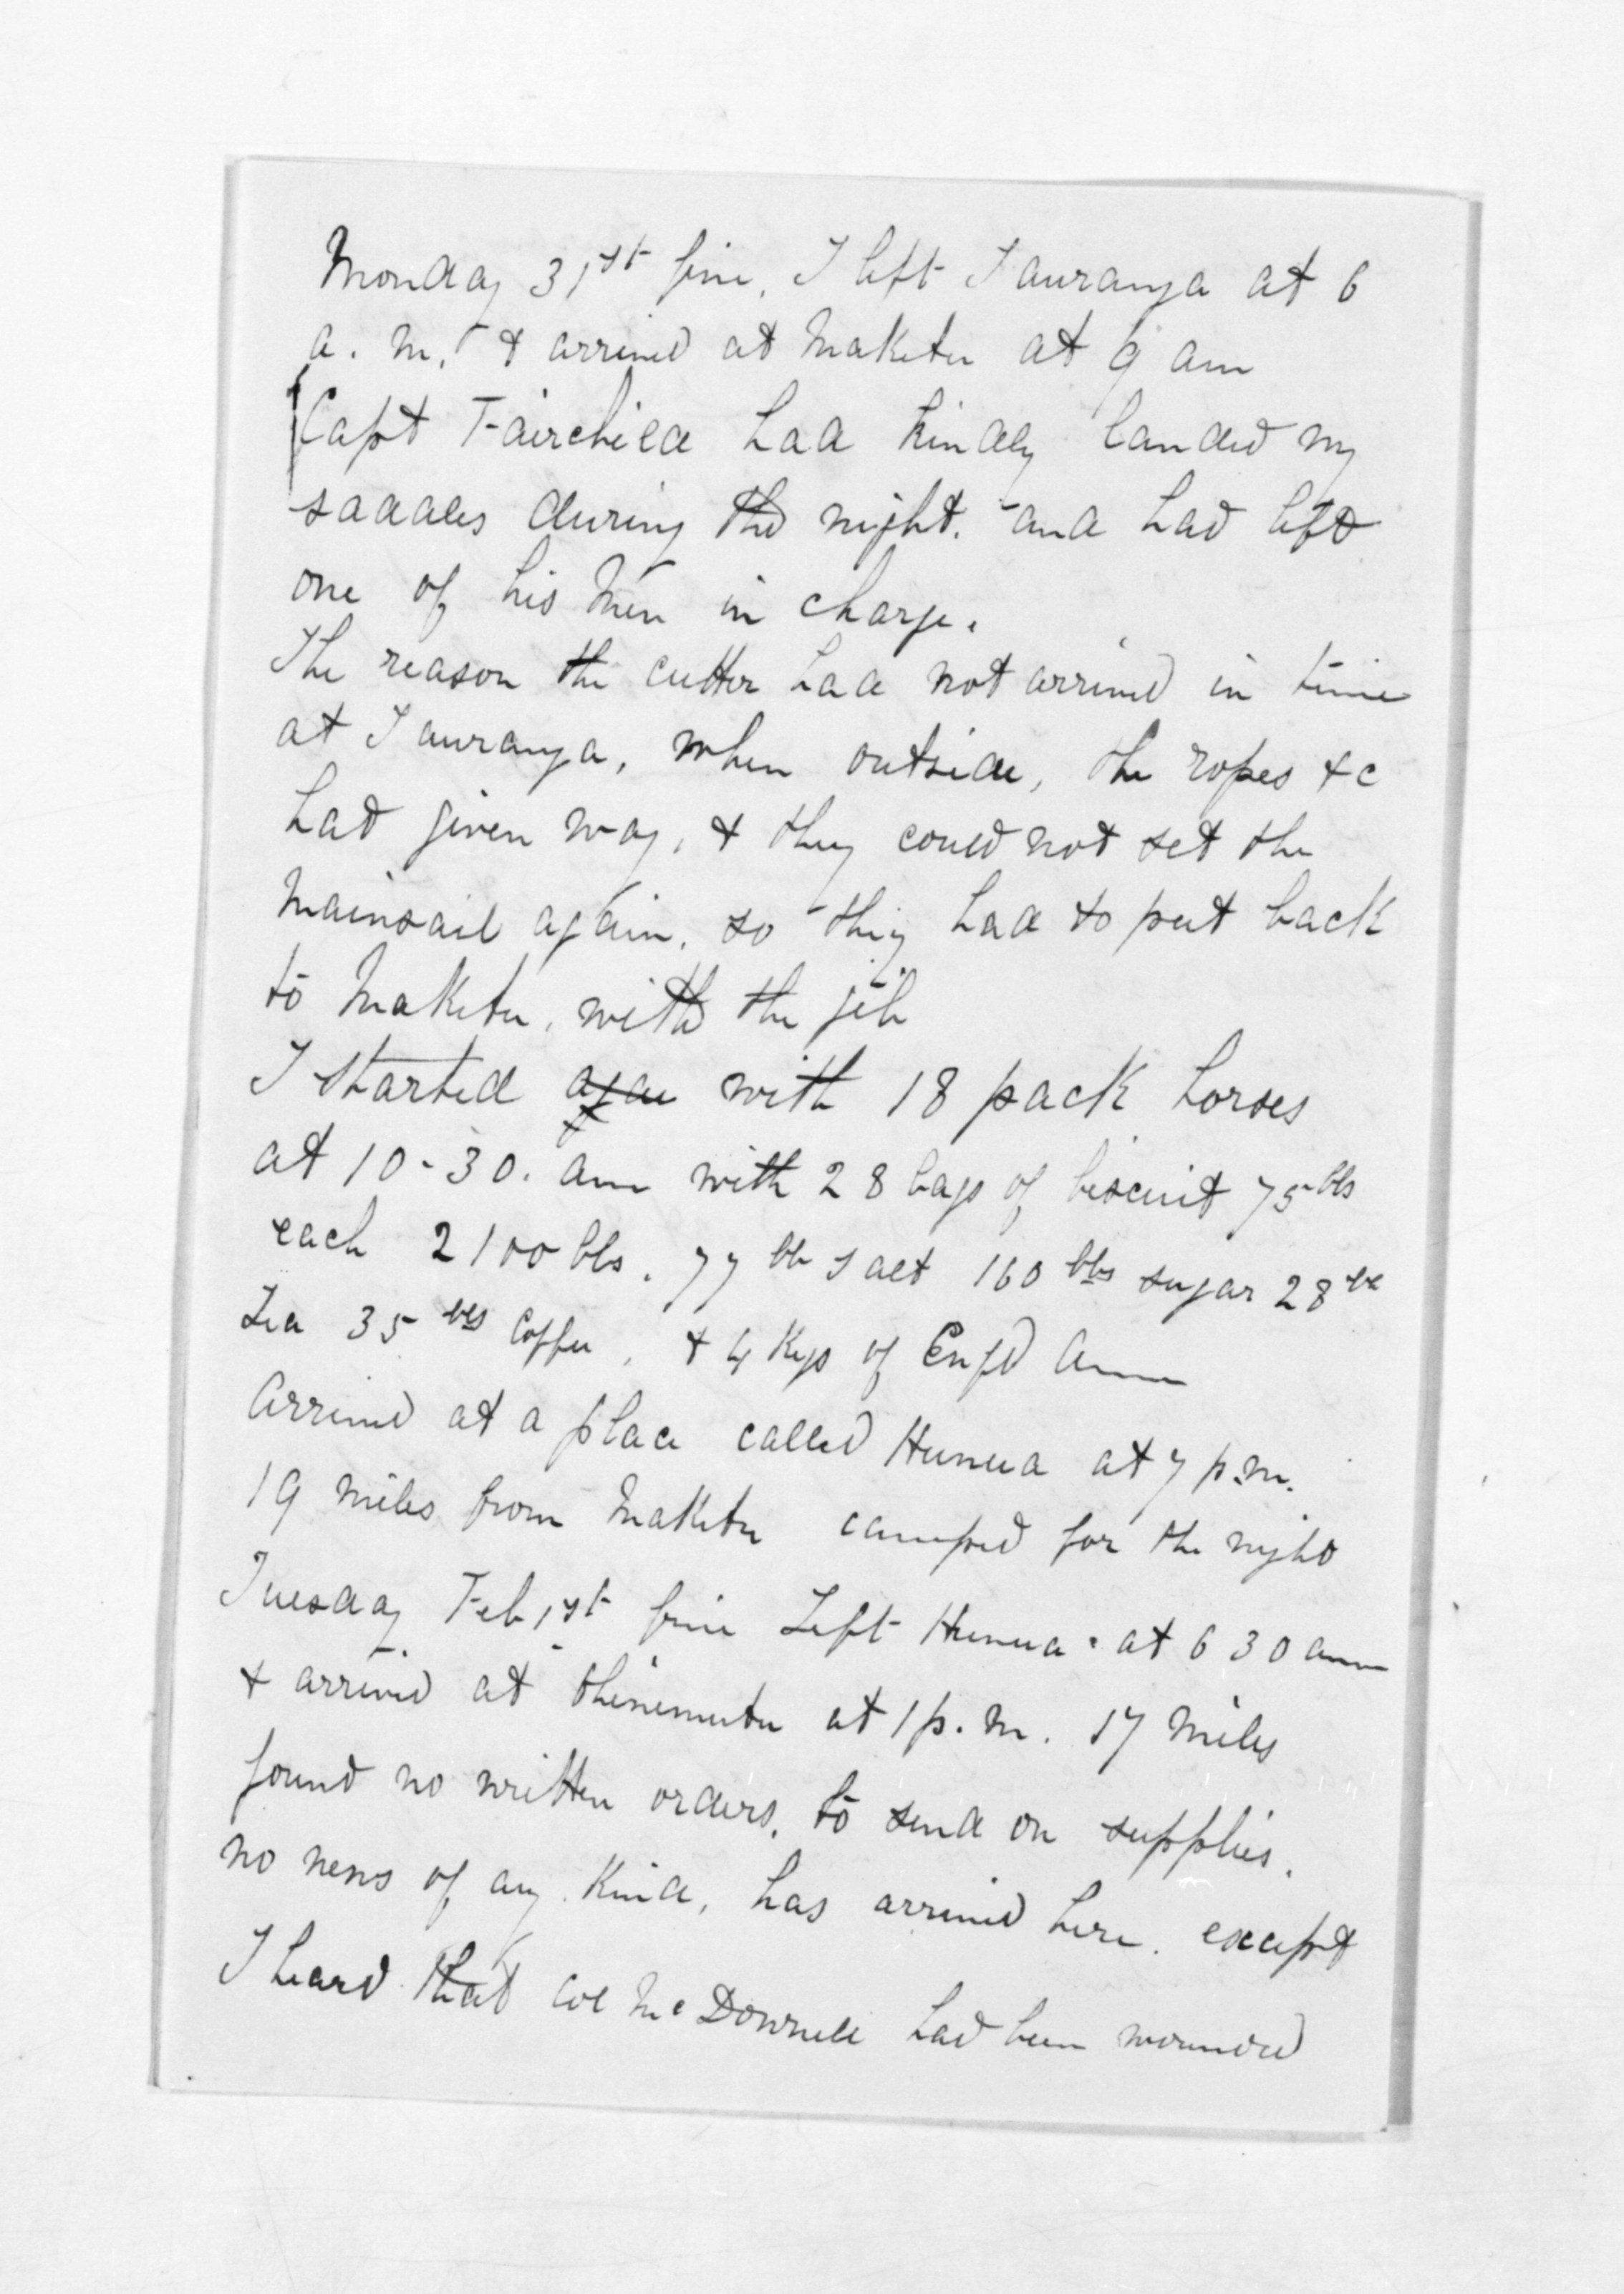 Monday 31st fine, I left Tauranga at 6
a.m. & arrived at Maketu at 9 am
Capt Fairchild had kindly landed my
saddles during the night. and had left
one of his men in charge.
The reason the cutter had not arrived in time
at Tauranga, when outside, the ropes &c
had given way, & they could not set the
mainsail again, so they had to put back
to Maketu, with the jib
I started agai with 18 pack horses
at 10-30. am with 28 bags of biscuit 75 lbs
each 2100 lbs. 77 lb salt 160 lbs sugar 28 lb
Tea 35 lbs Coffee, & 4 Kegs of Enfd Amm
Arrived at a place called Hunua at 7 p.m.
19 miles from Maketu camped for the night
Tuesday Feb 1st fine Left Hunua at 6 30 am
& arrived at Ohinemutu at 1 p.m. 17 miles
found no written orders, to send on supplies.
no news of any kind, has arrived here. except
I heard that Col McDonnell had been wounded